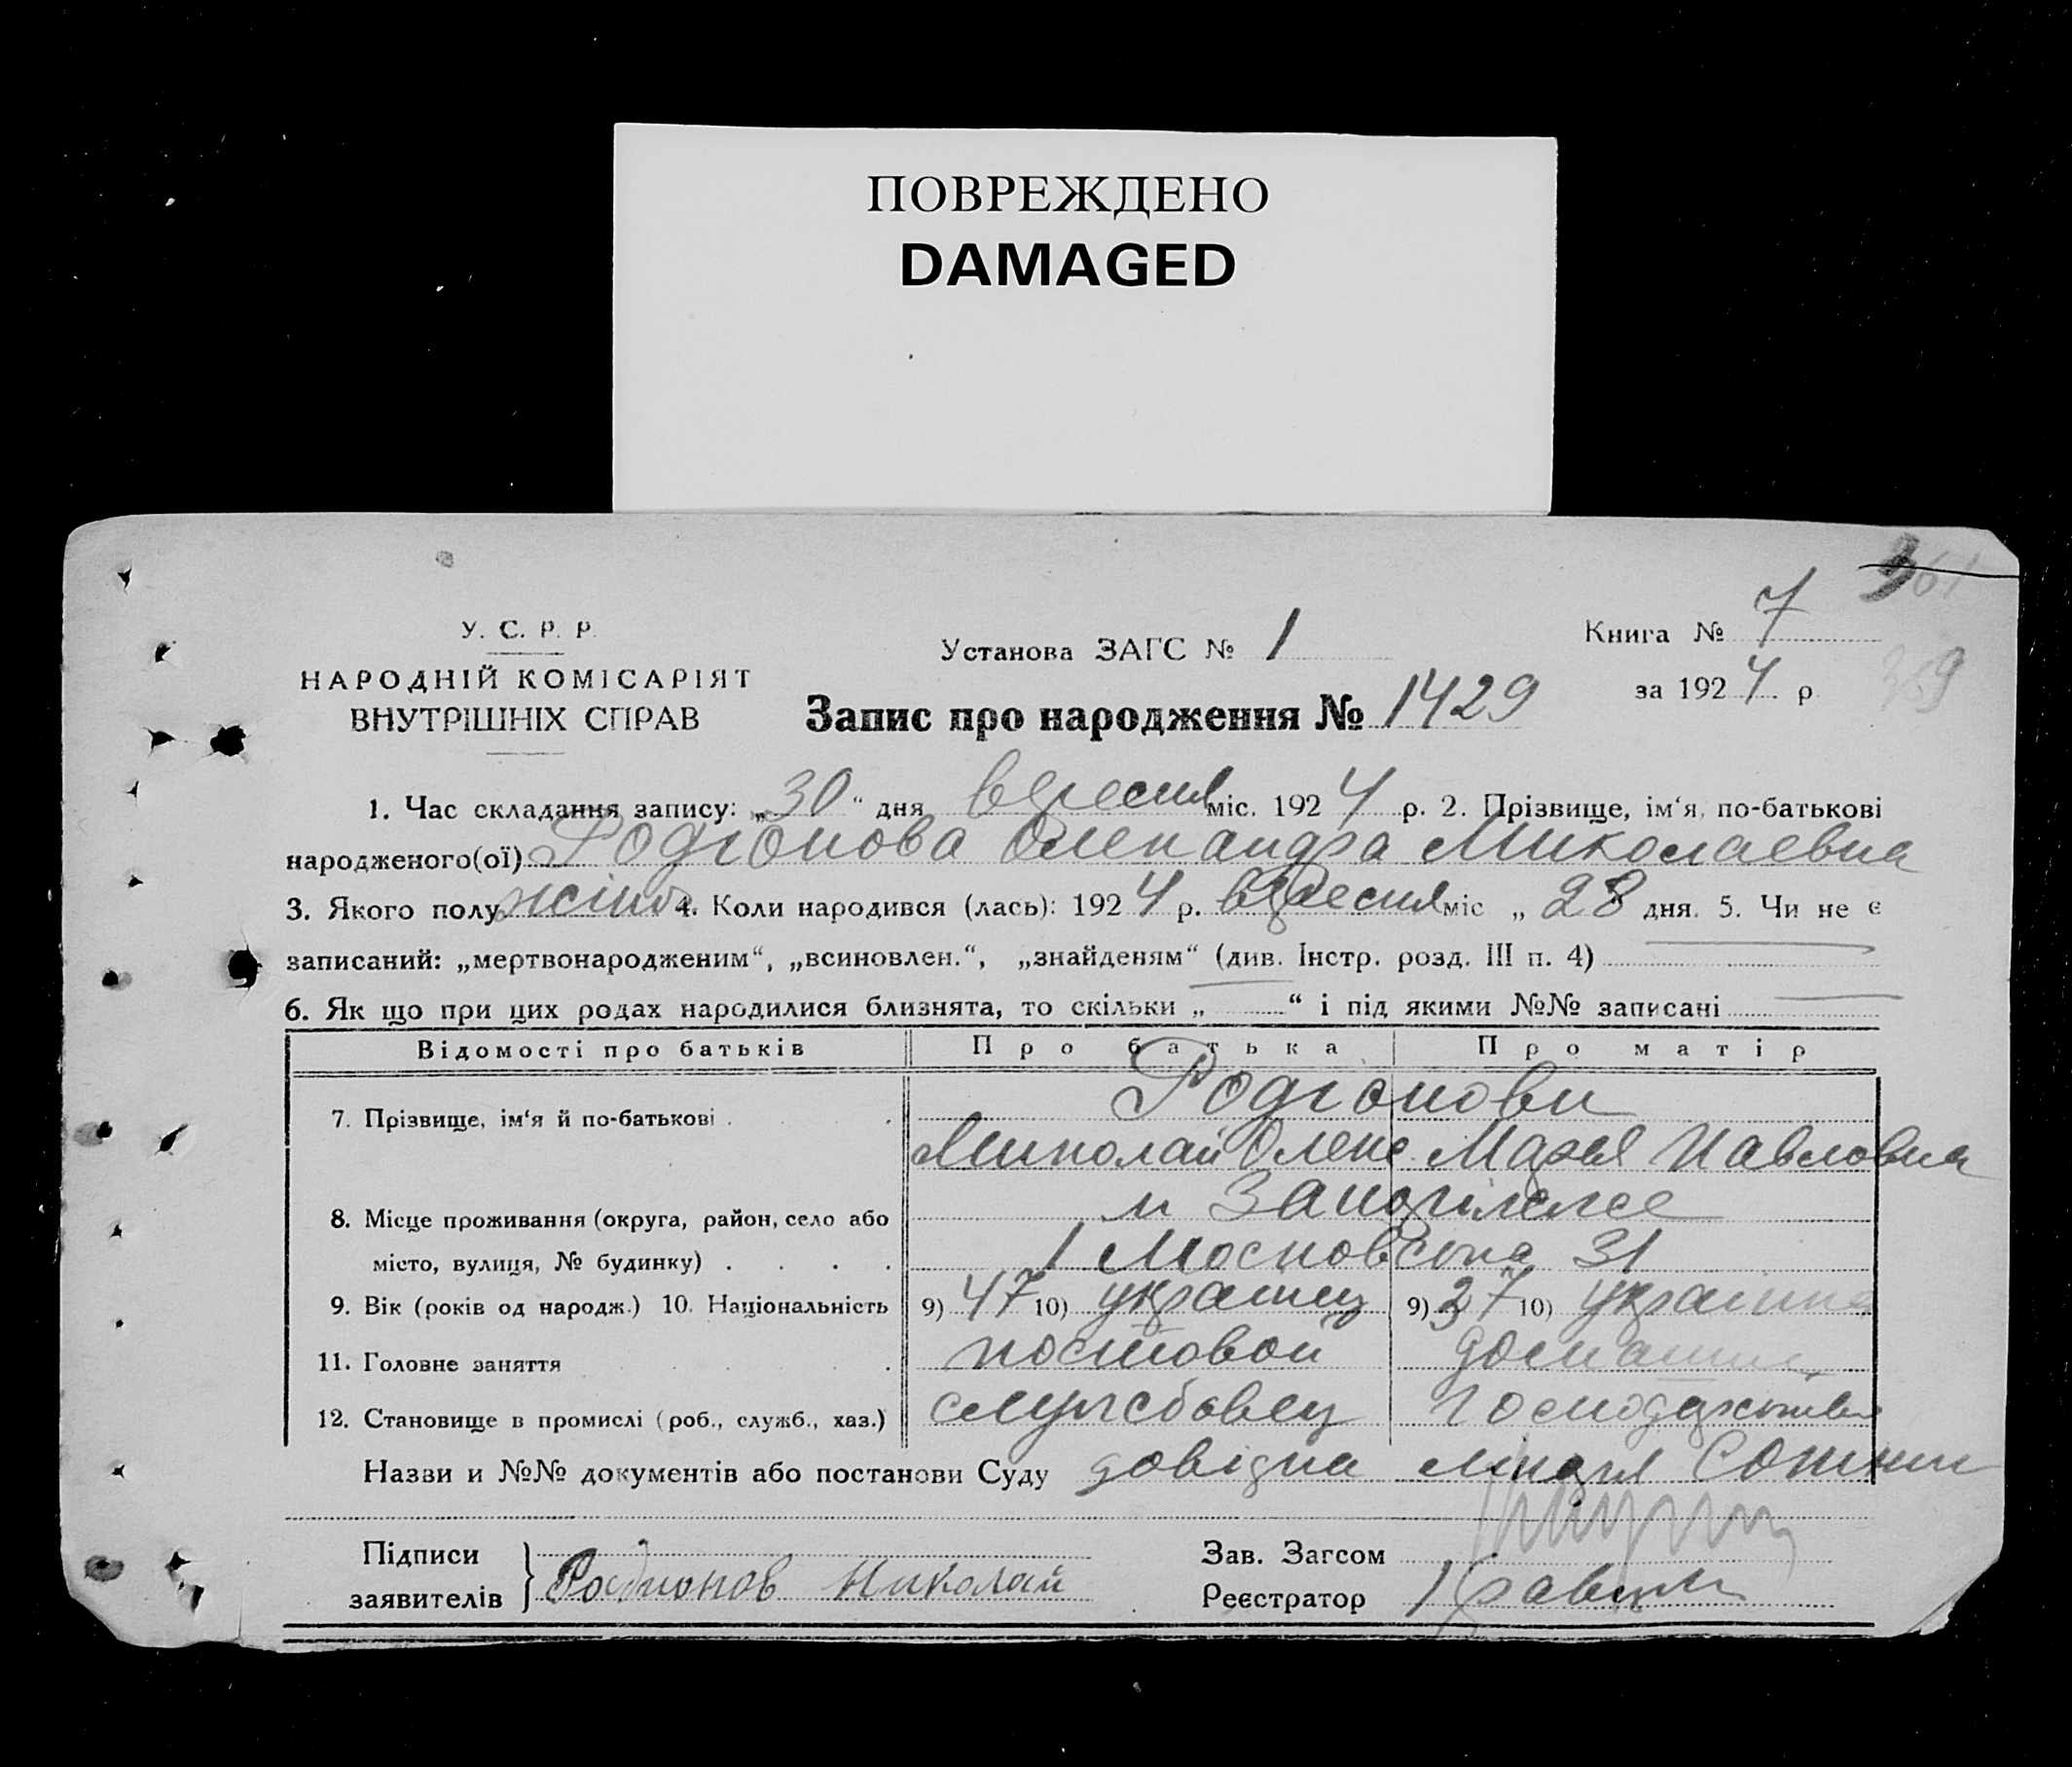 ПОВРЕЖДЕНО
DAMAGED
У. С. Р. Р.
НАРОДНІЙ КОМІСАРІЯТ
ВНУТРІШНІХ СПРАВ
Установа ЗАГС № 1
Книга № 7
за 1924 р.
359
Запис про народження № 1429
1. Час складання запису: „30“ дня вересня міс. 1924 р. 2. Прізвище, ім‘я, по-батькові
народженого(ої) Родіонова Олександра Миколаевна
3. Якого полу жіноч 4. Коли народився (лась): 1924 р. вересня міс „ 28 дня. 5. Чи не є
записаний: „мертвонародженим“, „всиновлен.“, „знайденям“ (див. Інстр. розд. III п. 4)
6. Як що при цих родах народилися близнята, то скільки „ “ і під якими №№ записані
Відомості про батьків Про батька Про матір
7. Прізвище, ім‘я й по-батькові . Родіонови
Миколай Олекс Марья Павловна
8. Місце проживання (округа, район, село або м Запоріжже
місто, вулиця, № будинку) . . . . 1 Московська 31
9. Вік (років од народж.) 10. Національність 9) 47 10) украінец 9) 37 10) украінка
11. Головне заняття постовой домашне
12. Становище в промислі (роб., служб., хаз.) служсбовец господарство
Назви и №№ документів або постанови Суду довідка
Підписи
заявителів Родионов Николай
Зав. Загсом
Реєстратор Кравцов